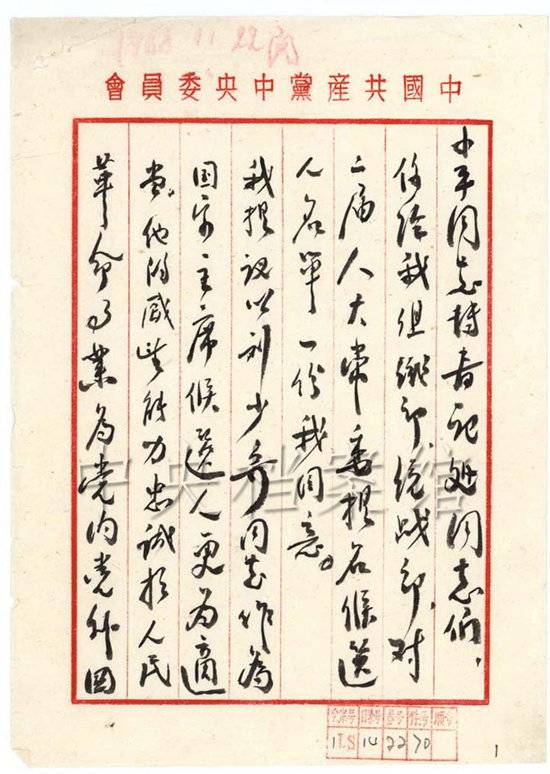 1958 11 22
中國共産黨中央委員會
小平同志转书记处同志们,
你给我组织部、统战部、对
二届人大常委提名候选
人名单一份我同意。
我提议以刘少奇同志作为
国家主席候选人更为適
当。他的威望能力忠诚於人民
革命事业为党内党外国
中央档案馆
14 22 70
1